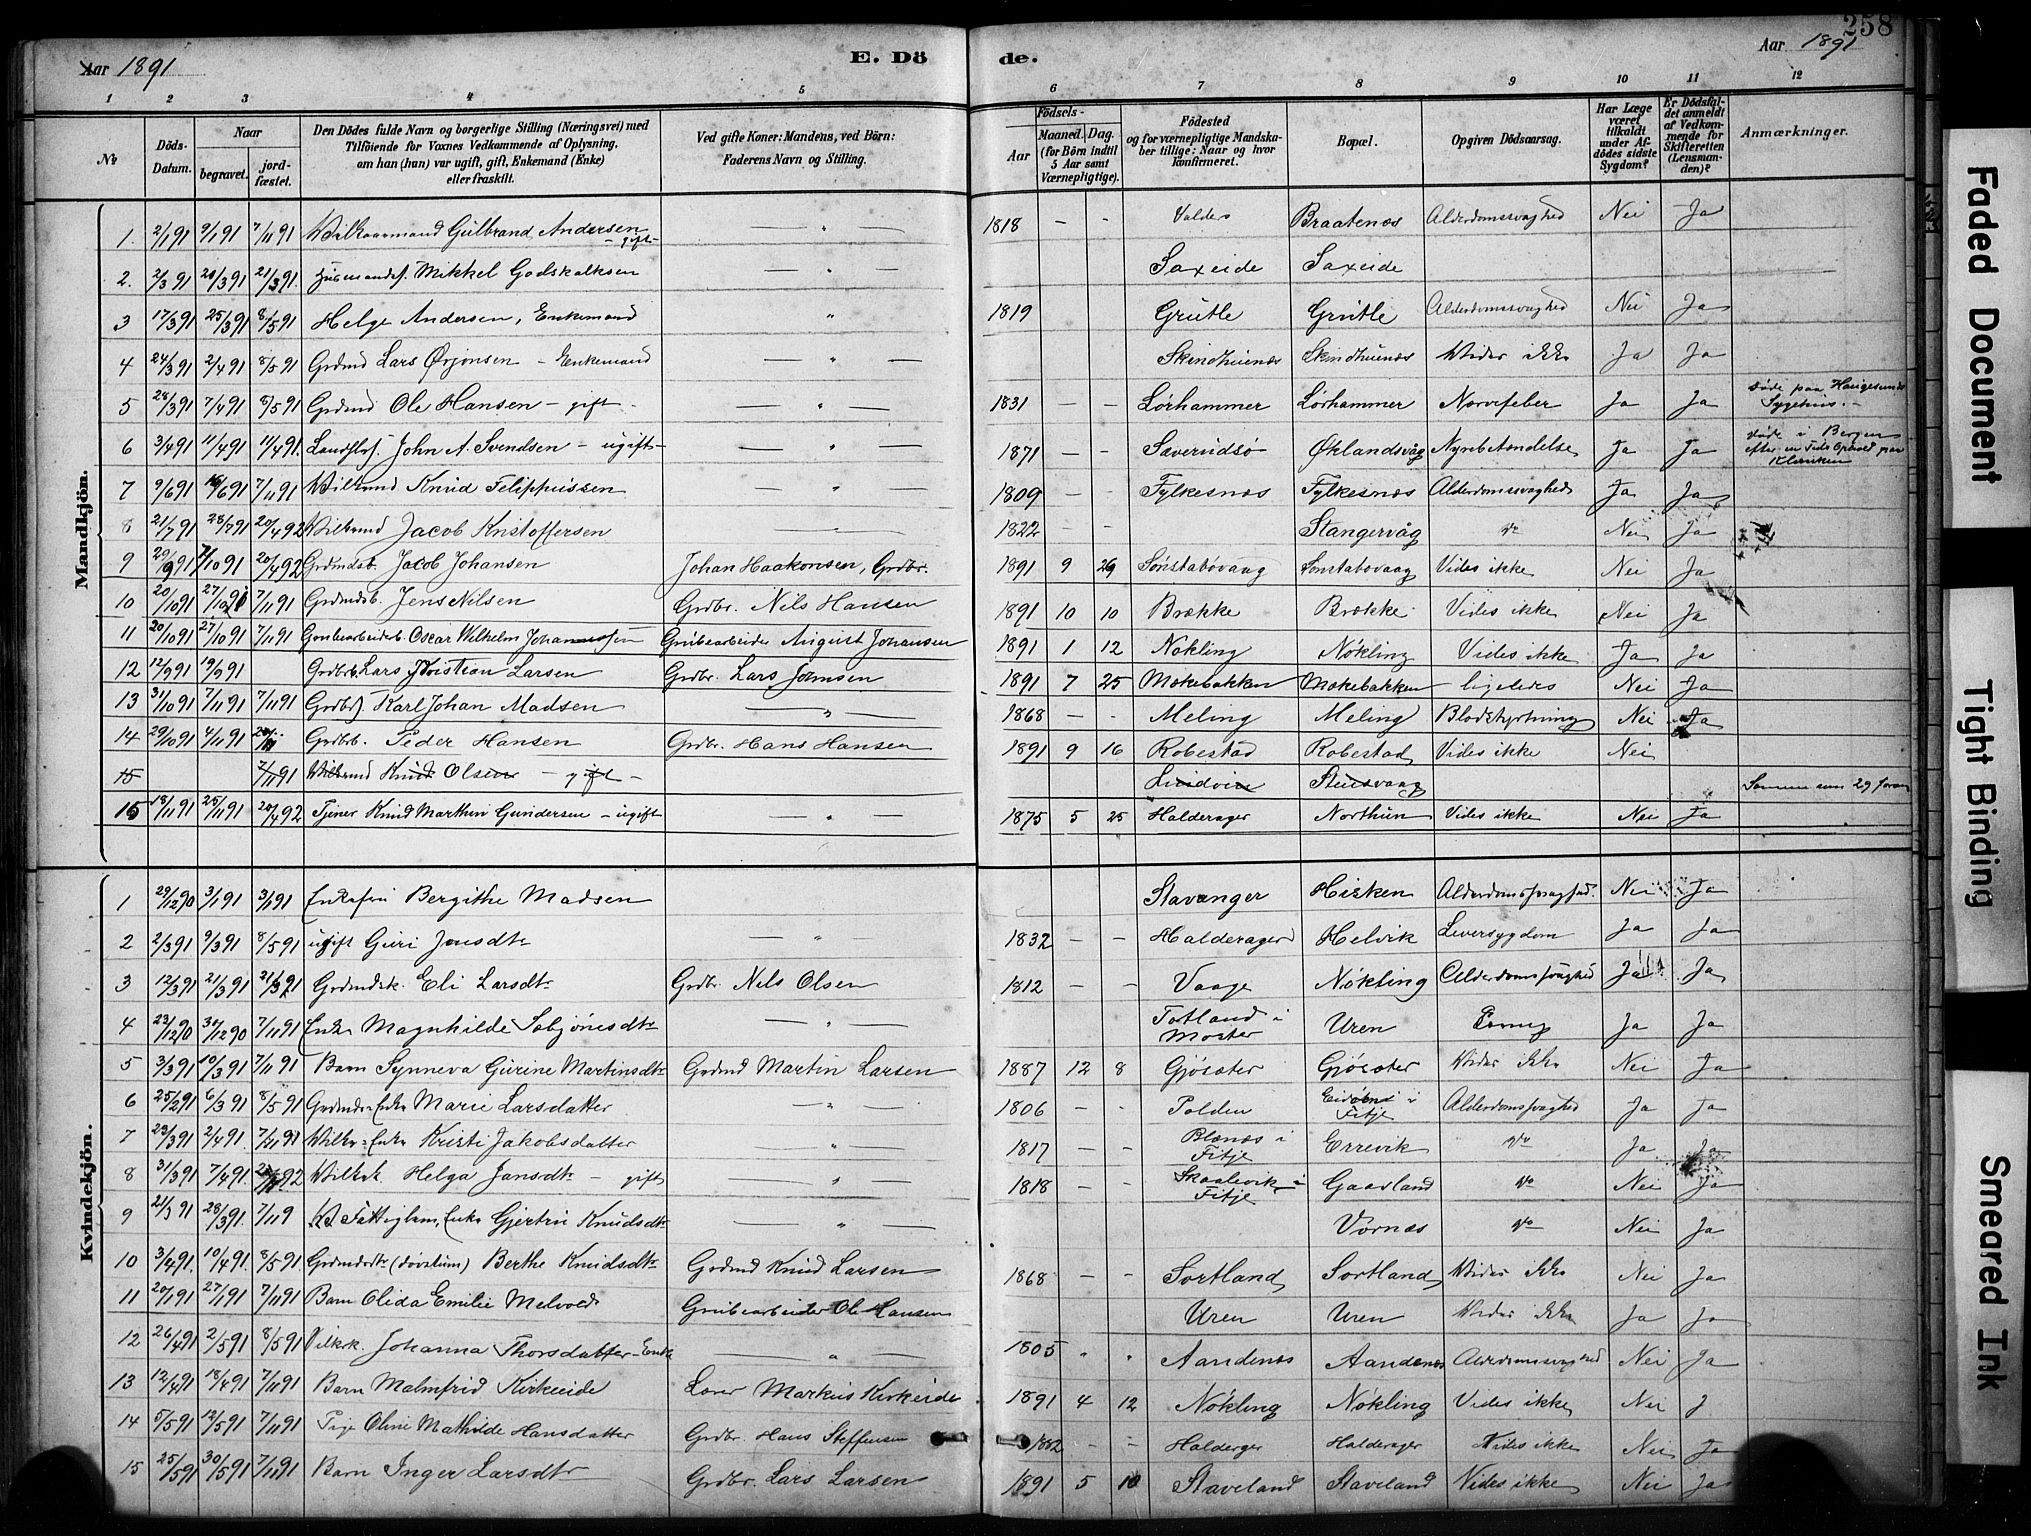 258
Aar 1891
E. Dö
de.
Aar 1891
1 2 3 4 5 6 7 8 9 10 11 12
No
Döds-Datum.
Naar
begravet.
jordfæstet.
Den Dödes fulde Navn og borgerlige Stilling (Næringsvei) med
Tilföiende for Voxnes Vedkommende af Oplysning,
om han (hun) var ugift, gift, Enkemand (Enke)
eller fraskilt.
Ved gifte Koner: Mandens, ved Börn:
Faderens Navn og Stilling.
Födsels-
Aar
Maaned. Dag.
(for Börn indtil
5 Aar samt
Værnepligtige).
Födested
og for værnepligtige Mandska-
ber tillige: Naar og hvor
konfirmeret.
Bopæl.
Opgiven Dödsaarsag.
Har Læge
været
tilkaldt
under Af-
dödes sidste
Sygdom?
Er Dödsfal-
det anmeldt
af Vedkom-
mende for
Skifteretten
(Lensman-
den)?
Anmærkninger.
Mandkjön.
1. 2/1 91 9/1 91 7/11 91 Gulbrand Andersen - gift - 1818 - - Valders Braatenæs Alderdomssvaghed Nei Ja
2. 2/3 91 20/3 91 21/3 91. Mikkel Godskalksen Saxeide Saxeide
3 17/3 91 25/3 91 8/5 91 Helge Andersen, Enkemand 1819 Grutle Grutle Alderdomssvaghed Nei Ja
4 24/3 91 2/4 91 8/5 91 Grdmd Lars Ørjonsen - Enkemand Skindhuenæs Skindhuenæs Vides ikke Ja Ja
5 28/3 91 7/4 91 8/5 91 Grdmd Ole Hansen - gift - 1831 - - Lörhammer Lörhammer Nervefeber Ja Ja Döde paa Haugesunds Sygehus. -
6 3/4 91 11/4 91 11/4 91. John A. Svendsen - ugift - 1871 - - Saverudsö Øklandsvåg Nyrebetændelse Ja Ja Döde i Bergen efter en Tids Ophold paa Kliniken
7 9/6 91 16/6 91 7/11 91 Knud Filippussen 1809 - - Fylkesnæs Fylkesnæs Alderdomssvaghed Ja Ja
8 21/7 91 28/7 91 20/4 92 Jacob Kristoffersen 1822 - - Stangervåg do Nei Ja
9 29/9 91 7/10 91 20/4 92 Grdmdsb. Jacob Johansen Johan Haakonsen, Grdbr. 1891 9 29 Sönstabövaag Sönstabövaag Vides ikke Nei Ja
10 20/10 91 27/10 91 7/11 91 Grdmdsb. Jens Nilsen Grdbr. Nils Hansen 1891 10 10 Brække Brække Vides ikke Nei Ja
11 20/10 91 27/10 91 7/11 91 Oscar Wilhelm Johannessen Grubearbeider August Johansen 1891 1 12 Nökling Nökling Vides ikke Ja Ja
12 12/9 91 19/9 91 Grdbrb. Lars Kristian Larsen Grdbr. Lars Jörnsen 1891 7 25 Mækebakken Mækebakken ligeledes Nei Ja
13 31/10 91 7/11 91 7/11 91 Karl Johan Madsen 1868 - - Meling Meling Blodstyrtning Nei Ja
14 29/10 91 4/11 91 Grdbrb. Peder Hansen Grdbr. Hans Hansen 1891 9 16 Robestad Robestad Vides ikke Nei
15 7/11 91 Knud Olsen - gift - Stuesvaag Samme som 29 foran
15 18/11 91 25/11 91 20/4 92 Tjener Knud Marthin Gundersen - ugift 1875 5 25 Halderager Northun Vides ikke Nei Ja
Kvindekjön.
1 29/12 90 3/1 91 3/1 91 Bergithe Madsen Stavanger Hisken Alderdomssvaghed. Nei Ja
2 2/3 91 9/3 91 8/5 91 ugift Guri Jonsdtr 1832 - - Halderager Helvik Leversygdom Ja Ja
3 12/3 91 21/3 91 21/3 91 Grdmdsk. Eli Larsdtr Grdbr. Nels Olsen 1812 - - Vaage Nökling Alderdomssvaghed Ja Ja
4 23/12 90 30/12 90 7/11 91 Enke Magnhilde Sebjönsdtr Totland i Moster Uren Ja Ja
5 3/3 91 10/3 91 7/11 91 Barn Synneva Gurine Martinsdtr Grdmd Martin Larsen 1887 12 8 Gjösæter Gjösæter Vides ikke Nei Ja
6 25/2 91 6/3 91 8/5 91 Marie Larsdatter 1806 - - Polden i Fitje Alderdomssvaghed Ja Ja
7 23/3 91 2/4 91 7/11 91 Kristi Jakobsdatter 1817 - - Blænæs i Fitje Errevik do Ja Ja
8 31/3 91 7/4 91 Helga Jansdtr - gift 1818 - - Skaalevik i Fitje Gaasland do Nei Ja
9 21/3 91 28/3 91. 7/11 9 Enke Gjertru Knudsdtr Vornæs do Nei Ja
10 3/4 91. 10/4 91. 8/5 91 (dövstum) Berthe Knudsdtr Grdmd Knud Larsen 1868 - - Sortland Sortland Vides ikke Nei Ja
11 20/1 91 27/1 91 7/11 91 Barn Olida Emilie Melvold Grubearbeider Ole Hansen Uren Uren Vides ikke Ja Ja
12 26/4 91 2/5 91 8/5 91 Johanna Thorsdatter - Enke 1805 " " Aandenæs Aandenæs Alderdomssvaghed Nei Ja
13 12/4 91 18/4 91 7/11 91 Barn Malmfrid Kirkeeide Lærer Markus Kirkeide 1891 4 12 Nökling Nökling Vides ikke Nei J
14 5/5 91 12/5 91 7/11 91 Pige Oline Mathilde Hansdatter Grdbr. Hans Steffensen 1882 - - Halderger Halderager Vides ikke Nei Ja
15 25/5 91 30/5 91 7/11 91 Barn Inger Larsdtr Grdbr. Lars Larsen 1891 5 10 Staveland Staveland Vides ikke Nei Ja
Faded Document
Tight Binding
Smeared Ink